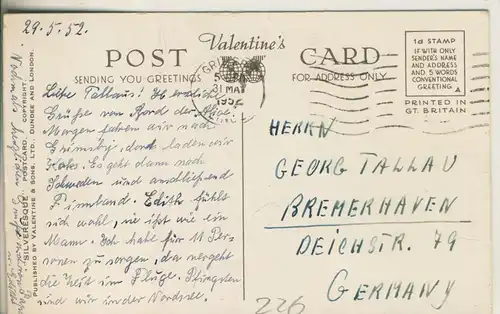 29.5.52.
POST Valentine's CARD
SENDING YOU GREETINGS
FOR ADDRESS ONLY
1d STAMP
IF WITH ONLY
SENDER'S NAME
AND ADDRESS
AND 5 WORDS
CONVENTIONAL
GREETING
PRINTED IN
GT. BRITAIN
31 MAY
1952
Liebe Tallaus! Ich
Grüße von Bord der
Morgen fahren wir nach
Grimsby, dort laden wir
Koks. Es geht dann nach
Schweden und anschließend
Finnland. Edith fühlt
sich wohl, sie ißt wie ein
Mann. Ich habe für 11 Per-
sonen zu sorgen, da vergeht
die Zeit im Fluge. Pfingsten
sind wir in der Nordsee.
Nochmals herzlichen
"SILVERESQUE" POSTCARD. COPYRIGHT
PUBLISHED BY VALENTINE & SONS, LTD., DUNDEE AND LONDON.
HERRN
GEORG TALLAU
BREMERHAVEN
DEICHSTR. 79
GERMANY
226